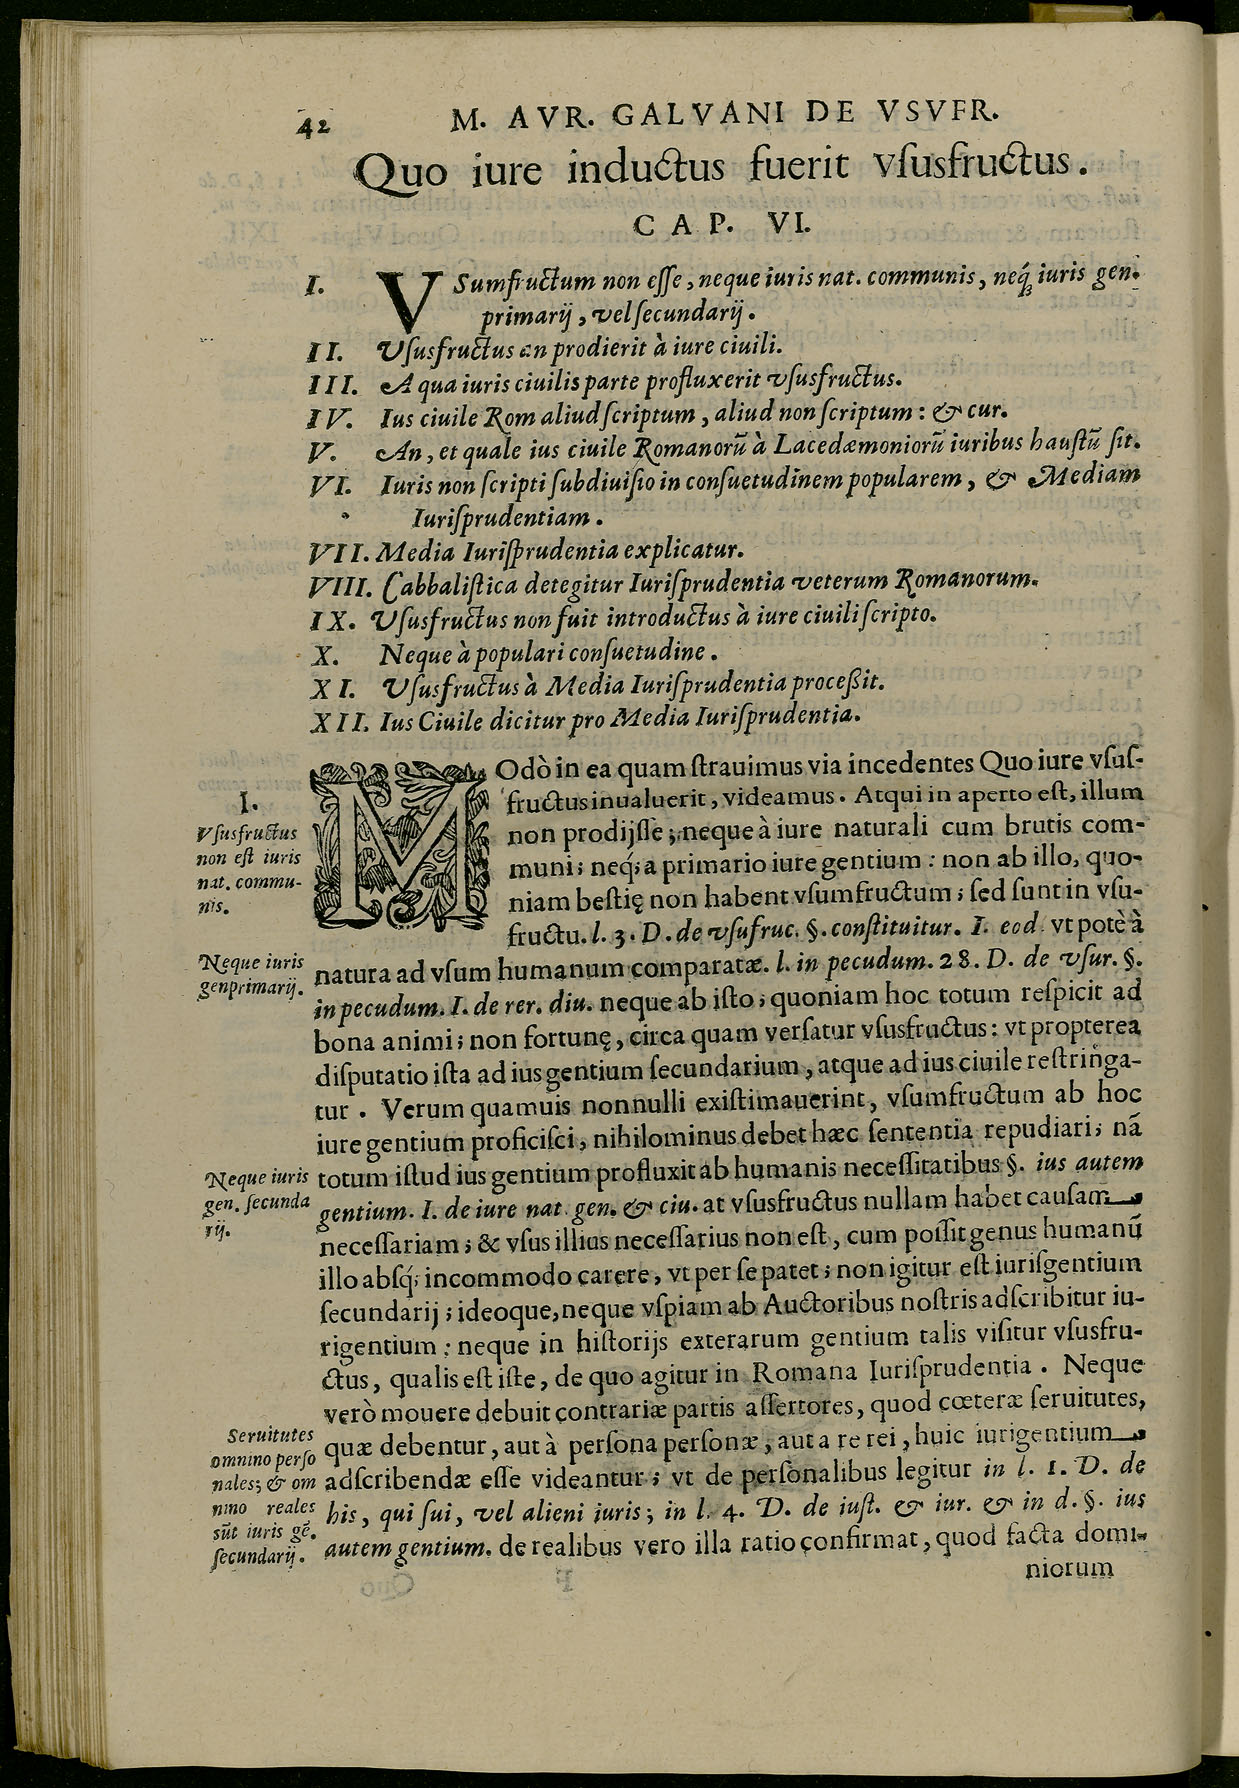 42 M. AVR. GALVANI DE VSVFR.
Quo iure inductus fuerit vſusfructus.
CAP. VI.
I. VSumfructum non eſſe, neque iuris nat. communis, neq́; iuris gen.
primarij, vel ſecundarij.
II. Vſusfructus an prodierit à iure ciuili.
III. A qua iuris ciuilis parte profluxerit vſusfructus.
IV. Ius ciuile Rom aliud ſcriptum, aliud non ſcriptum: & cur.
V. An, et quale ius ciuile Romanorũ à Lacedæmoniorũ iuribus hauſtũ ſit.
VI. Iuris non ſcripti ſubdiuiſio in conſuetudinem popularem, & Mediam
Iuriſprudentiam.
VII. Media Iuriſprudentia explicatur.
VIII. Cabbaliſtica detegitur Iuriſprudentia veterum Romanorum.
IX. Vſusfructus non fuit introductus à iure ciuili ſcripto.
X. Neque à populari conſuetudine.
XI. Vſusfructus à Media Iuriſprudentia proceßit.
XII. Ius Ciuile dicitur pro Media Iuriſprudentia.
MOdò in ea quam ſtrauimus via incedentes Quo iure vſuſ-
fructus inualuerit, videamus. Atqui in aperto eſt, illum
non prodijſſe; neque à iure naturali cum brutis com-
muni; neq́; a primario iure gentium: non ab illo, quo-
niam beſtię non habent vſumfructum; ſed ſunt in vſu-
fructu. l. 3. D. de vſufruc. §. conſtituitur. I. eod. vt potè à
natura ad vſum humanum comparatæ. l. in pecudum. 28. D. de vſur. §.
in pecudum. I. de rer. diu. neque ab iſto; quoniam hoc totum reſpicit ad
bona animi; non fortunę, circa quam verſatur vſusfructus: vt propterea
diſputatio iſta ad ius gentium ſecundarium, atque ad ius ciuile reſtringa-
tur. Verum quamuis nonnulli exiſtimauerint, vſumfructum ab hoc
iure gentium proficiſci, nihilominus debet hæc ſententia repudiari; nã
totum iſtud ius gentium profluxit ab humanis neceſſitatibus §. ius autem
gentium. I. de iure nat. gen. & ciu. at vſusfructus nullam habet cauſam
neceſſariam; & vſus illius neceſſarius non eſt, cum poſſit genus humanũ
illo abſq́; incommodo carere, vt per ſe patet; non igitur eſt iuriſgentium
ſecundarij; ideoque, neque vſpiam ab Auctoribus noſtris adſcribitur iu-
rigentium: neque in hiſtorijs exterarum gentium talis viſitur vſusfru-
ctus, qualis eſt iſte, de quo agitur in Romana Iuriſprudentia. Neque
verò mouere debuit contrariæ partis aſſertores, quod cœteræ ſeruitutes,
quæ debentur, aut à perſona perſonæ, aut a re rei, huic iurigentium
adſcribendæ eſſe videantur; vt de perſonalibus legitur in l. 1. D. de
his, qui ſui, vel alieni iuris; in l. 4. D. de iuſt. & iur. & in d. §. ius
autem gentium. de realibus vero illa ratio confirmat, quod facta domi-
niorum
I.
Vſusfructus
non eſt iuris
nat. commu-
nis.
Neque iuris
gen primarij.
Neque iuris
gen. ſecunda
rij.
Seruitutes
omnino perſo
nales; & om
nino reales
sũt iuris gẽ.
ſecundarij.